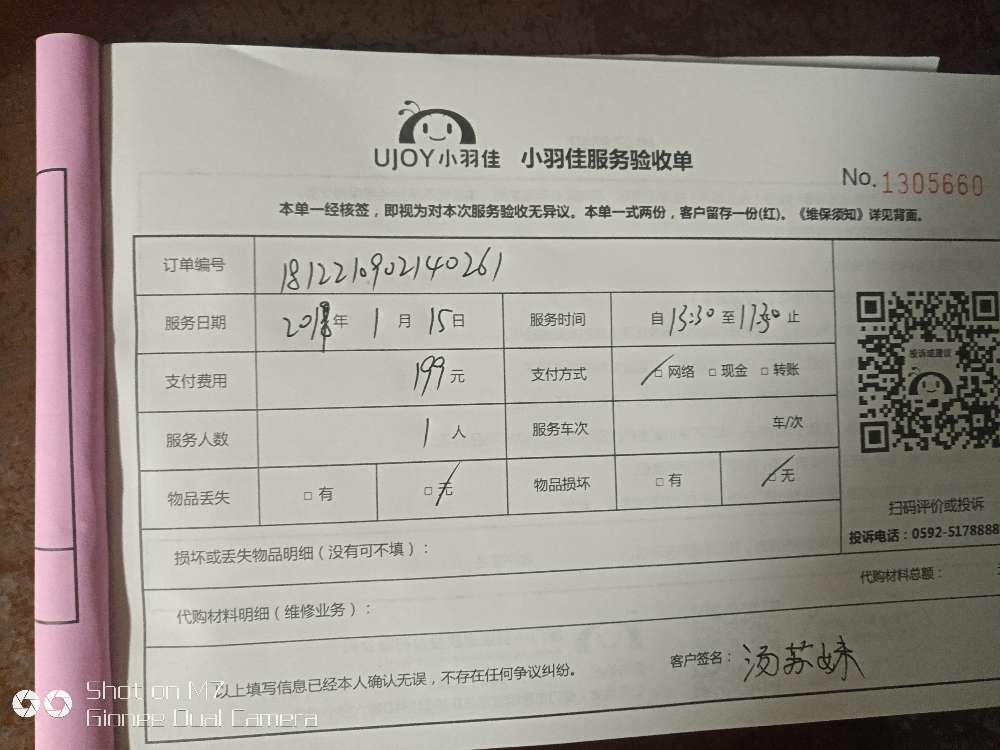 UJOY小羽佳 小羽佳服务验收单
No. 1305660
本单一经核签，即视为对本次服务验收无异议。本单一式两份，客户留存一份(红)。《维保须知》详见背面。
订单编号 181221090214026​1
服务日期 2018年 1月 15日 服务时间 自 13:30 至 17:30 止
支付费用 199 元 支付方式 □ 网络 □ 现金 □ 转账
投诉或建议
服务人数 1 人 服务车次 车/次
物品丢失 □ 有 □ 无 物品损坏 □ 有 □ 无
扫码评价或投诉
投诉电话：0592-5178888
损坏或丢失物品明细（没有可不填）：
代购材料总额：
代购材料明细（维修业务）：
以上填写信息已经本人确认无误，不存在任何争议纠纷。 客户签名：汤苏妹
Shot on M7
Gionee Dual Camera